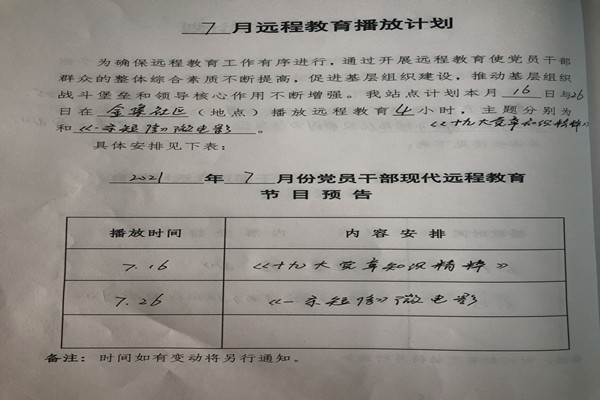 7 月远程教育播放计划
为确保远程教育工作有序进行，通过开展远程教育使党员干部
群众的整体综合素质不断提高，促进基层组织建设，推动基层组织
战斗堡垒和领导核心作用不断增强。我站点计划本月 16 日与26
日在 社区（地点）播放远程教育 4 小时，主题分别为
《十九大党章知识精粹》
和《一条短 》微电影 。
具体安排见下表：
2021 年 7 月份党员干部现代远程教育
节目预告
播放时间 内容安排
7.16 《十九大党章知识精粹》
7.26 《一条短 》微电影
备注： 时间如有变动将另行通知。